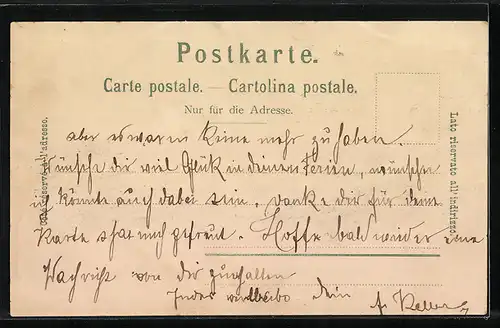 Postkarte.
Carte postale. — Cartolina postale.
Nur für die Adresse.
Côté réservé à l'adresse.
Lato riservato all'indirizzo.
aber es waren keine mehr zu haben.
Wünsche dir viel Glük in deinen Ferien, wünschte
ich könnte auch dabei sein. Danke dir für deine
Karte s hat mich gefreut. Hoffe bald wieder eine
Nachricht von dir zu erhalten
Indes verbleibe dein